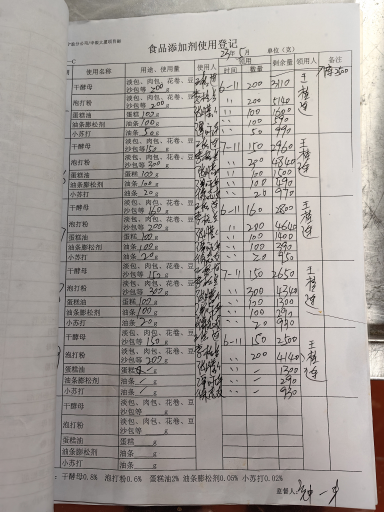 食品添加剂使用登记
23年5月 单位（克）
使用名称 用途、使用量 使用人 领用 剩余量 领用人 备注
时间 数量
干酵母 淡包、肉包、花卷、豆沙包等 200 g 6-11 200 2110
泡打粉 淡包、肉包、花卷、豆沙包等 200 g 〃 200 5140
蛋糕油 蛋糕 100 g 〃 100 1600
油条膨松剂 油条 100 g 〃 100 590
小苏打 油条 50 g 〃 50 990
干酵母 淡包、肉包、花卷、豆沙包等 150 g 7-11 150 2960
泡打粉 淡包、肉包、花卷、豆沙包等 300 g 〃 300 4840
蛋糕油 蛋糕 100 g 〃 100 1500
油条膨松剂 油条 100 g 〃 100 490
小苏打 油条 20 g 〃 20 970
干酵母 淡包、肉包、花卷、豆沙包等 160 g 6-11 160 2800
泡打粉 淡包、肉包、花卷、豆沙包等 200 g 〃 200 4640
蛋糕油 蛋糕 100 g 〃 100 1400
油条膨松剂 油条 100 g 〃 100 390
小苏打 油条 20 g 〃 20 950
干酵母 淡包、肉包、花卷、豆沙包等 150 g 7-11 150 2650
泡打粉 淡包、肉包、花卷、豆沙包等 300 g 〃 300 4340
蛋糕油 蛋糕 100 g 〃 100 1300
油条膨松剂 油条 100 g 〃 100 290
小苏打 油条 20 g 〃 20 930
干酵母 淡包、肉包、花卷、豆沙包等 150 g 6-11 150 2500
泡打粉 淡包、肉包、花卷、豆沙包等 200 g 〃 200 4140
蛋糕油 蛋糕 g 〃 1300
油条膨松剂 油条 g 〃 290
小苏打 油条 g 〃 930
干酵母 淡包、肉包、花卷、豆沙包等 g
泡打粉 淡包、肉包、花卷、豆沙包等 g
蛋糕油 蛋糕 g
油条膨松剂 油条 g
小苏打 油条 g
干酵母0.8% 泡打粉0.6% 蛋糕油2% 油条膨松剂0.03% 小苏打0.02%
监督人：